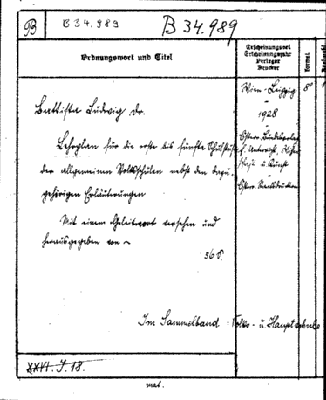 B
B 34.989
B 34.989
Ordnungswort und Titel
Erscheinungsort
Erscheinungsjahr
Verleger
Drucker
Format
Wien-Leipzig
8°
1928
Battista Ludwig Dr.
Lehrplan für die erste bis fünfte Schulstufe
der allgemeinen Volksschulen nebst den dazu-
gehörigen Erläuterungen
Österr. Bundesverlag
f. Unterricht, Wissen-
schaft u. Kunst
Österr. Staatsdruckerei
Mit einem Geleitwort versehen und
herausgegeben von ~
36 S
Im Sammelband: Volks- u. Hauptschule
XXVI. J. 18.
mat.